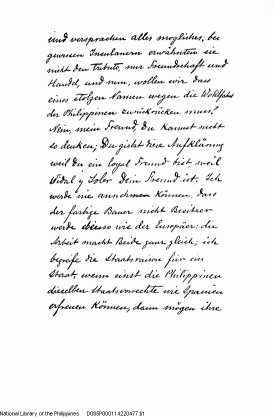 und versprachen alles mögliches, bei
gewissen Insulanern erwähnten sie
nicht den tributo, nur Freundschaft und
Handel, und nun, wollen wir dass
eines stolzen Namen wegen die Wohlfahrt
der Philippinen zurückrücken muss?
Nein, mein Freund, du kannst nicht
so denken; Du gibst diese Aufklärung
weil du ein loyal Freund bist, weil
Vidal y Soler Dein Freund ist. Ich
werde nie annehmen können, dass
der farbige Bauer nicht Besitzer
werde ebenso wie der Europäer: die
Arbeit macht Beide ganz gleich; ich
begreife die Staatsraison für ein
Staat, wenn einst die Philippinen
dieselben Staatsrechte wie Spanien
erfreuen können, dann mögen ihre
National Library of the Philippines